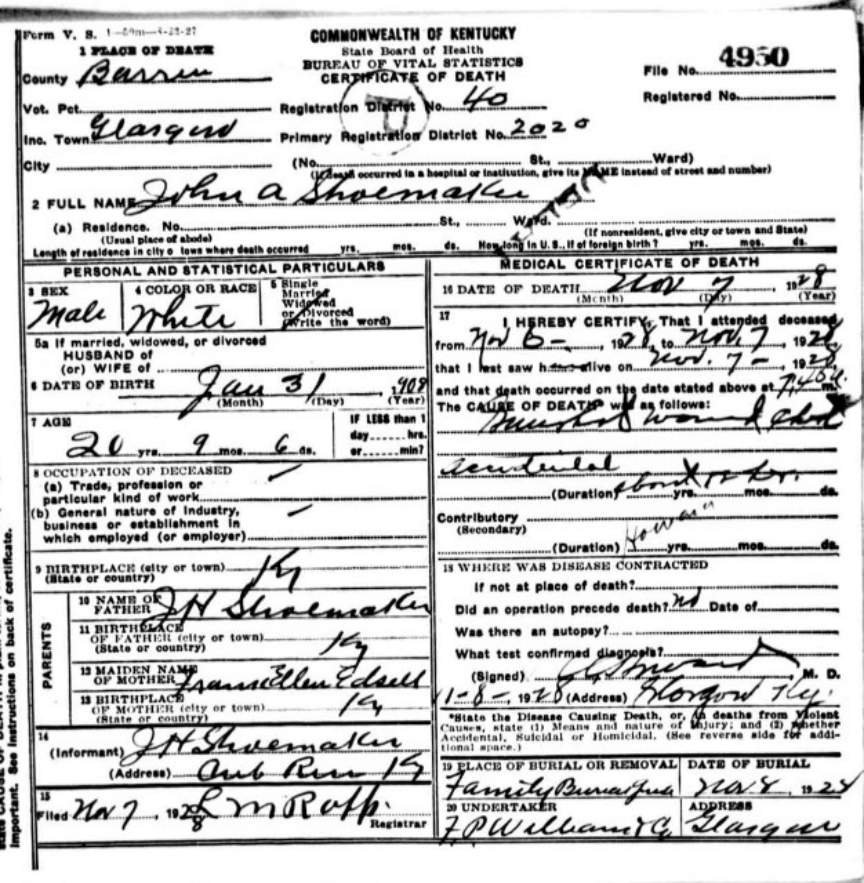 Form V. S. 1-50m-4-23-27
COMMONWEALTH OF KENTUCKY
State Board of Health
BUREAU OF VITAL STATISTICS
CERTIFICATE OF DEATH
1 PLACE OF DEATH
County Barren
File No. 4950
Vot. Pct.
Registration District No. 40
Registered No.
Inc. Town Glasgow
Primary Registration District No. 2020
City (No. St., Ward)
(If death occurred in a hospital or institution, give its NAME instead of street and number)
2 FULL NAME John A Shoemaker
(a) Residence. No. St., Ward.
(Usual place of abode) (If nonresident, give city or town and State)
Length of residence in city o town where death occurred yrs. mos. ds. How long in U. S., if of foreign birth? yrs. mos. ds.
PERSONAL AND STATISTICAL PARTICULARS
3 SEX
Male
4 COLOR OR RACE
White
5 Single
Married
Widowed
or Divorced
(Write the word)
5a If married, widowed, or divorced
HUSBAND of
(or) WIFE of
6 DATE OF BIRTH Jan 31 1908
(Month) (Day) (Year)
7 AGE
20 yrs. 9 mos. 6 ds.
IF LESS than 1
day hrs.
or min?
8 OCCUPATION OF DECEASED
(a) Trade, profession or
particular kind of work
(b) General nature of industry,
business or establishment in
which employed (or employer)
9 BIRTHPLACE (city or town)
(State or country) Ky
PARENTS
10 NAME OF
FATHER J H Shoemaker
11 BIRTHPLACE
OF FATHER (city or town)
(State or country) Ky
12 MAIDEN NAME
OF MOTHER Ellen Edsell
13 BIRTHPLACE
OF MOTHER (city or town)
(State or country) Ky
14
(Informant) J H Shoemaker
(Address) Run Ky
15
Filed Nov 7, 1928
Registrar
MEDICAL CERTIFICATE OF DEATH
16 DATE OF DEATH Nov 7 1928
(Month) (Day) (Year)
17
I HEREBY CERTIFY, That I attended deceased
from Nov 6 -, 1928 to Nov. 7, 1928
that I last saw h alive on Nov. 7 -, 1928
and that death occurred on the date stated above at m.
The CAUSE OF DEATH* was as follows:
Gunshot wound
accidental
(Duration) about yrs. mos. ds.
Contributory
(Secondary)
(Duration) yrs. mos. ds.
18 WHERE WAS DISEASE CONTRACTED
If not at place of death?
Did an operation precede death? no Date of
Was there an autopsy?
What test confirmed diagnosis?
(Signed) M. D.
11-8-, 1928 (Address) Glasgow Ky.
*State the Disease Causing Death, or, in deaths from Violent
Causes, state (1) Means and nature of Injury; and (2) whether
Accidental, Suicidal or Homicidal. (See reverse side for addi-
tional space.)
19 PLACE OF BURIAL OR REMOVAL
Family Burial
DATE OF BURIAL
Nov 8, 1928
20 UNDERTAKER
F. P. Williams & Co
ADDRESS
Glasgow
Important. See instructions on back of certificate.